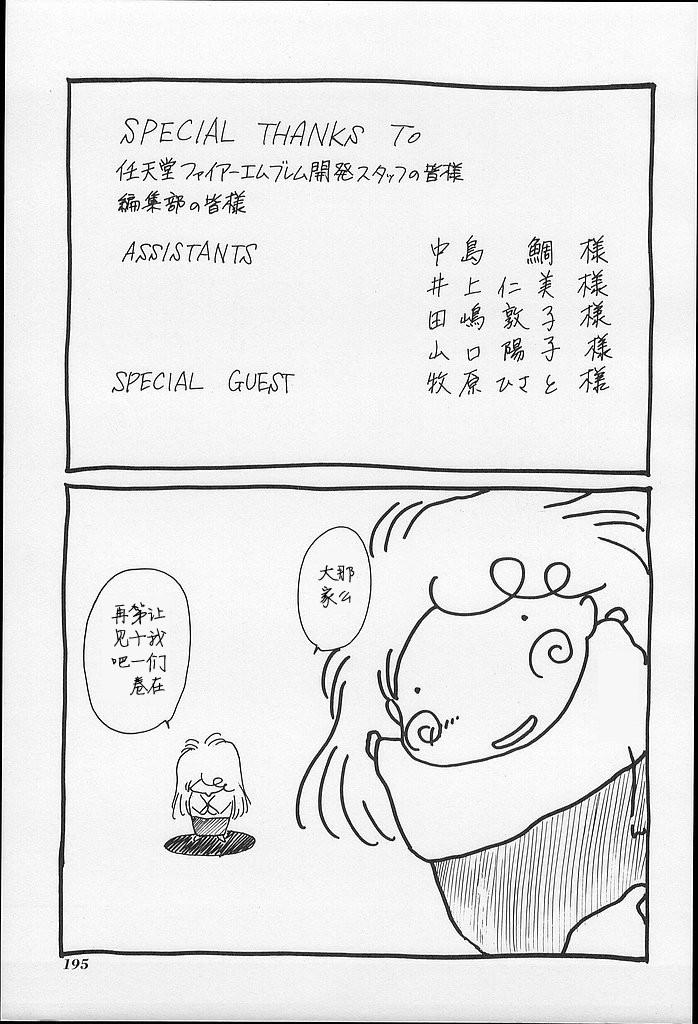 SPECIAL THANKS TO
任天堂ファイアーエムブレム開発スタッフの皆様
編集部の皆様
ASSISTANTS
中島 鯛 様
井上仁美様
田嶋敦子様
山口陽子様
SPECIAL GUEST
牧原ひさと様
那么
大家
让我们在
第十一卷
再见吧
195